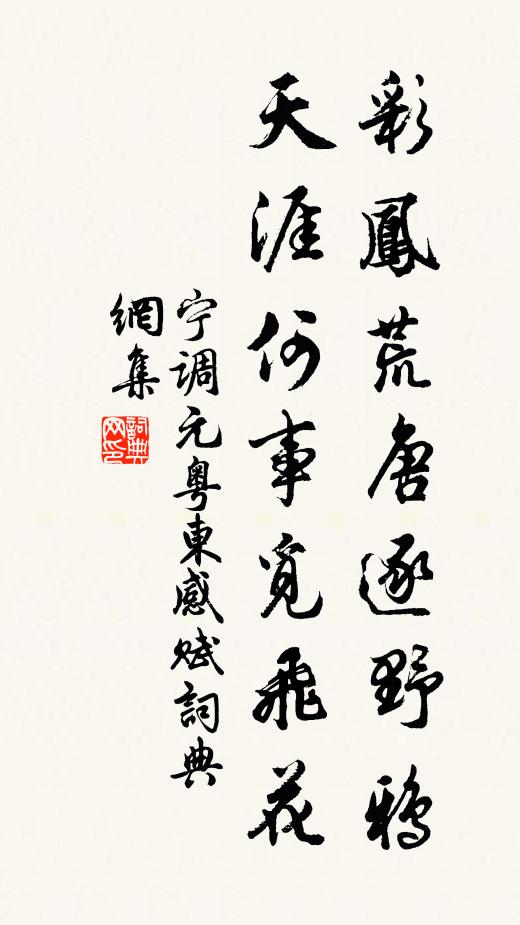 彩鳳荒唐逐野鴉
天涯何事覓飛花
宁调元粤東感賦詞典
網集
詞典
网印